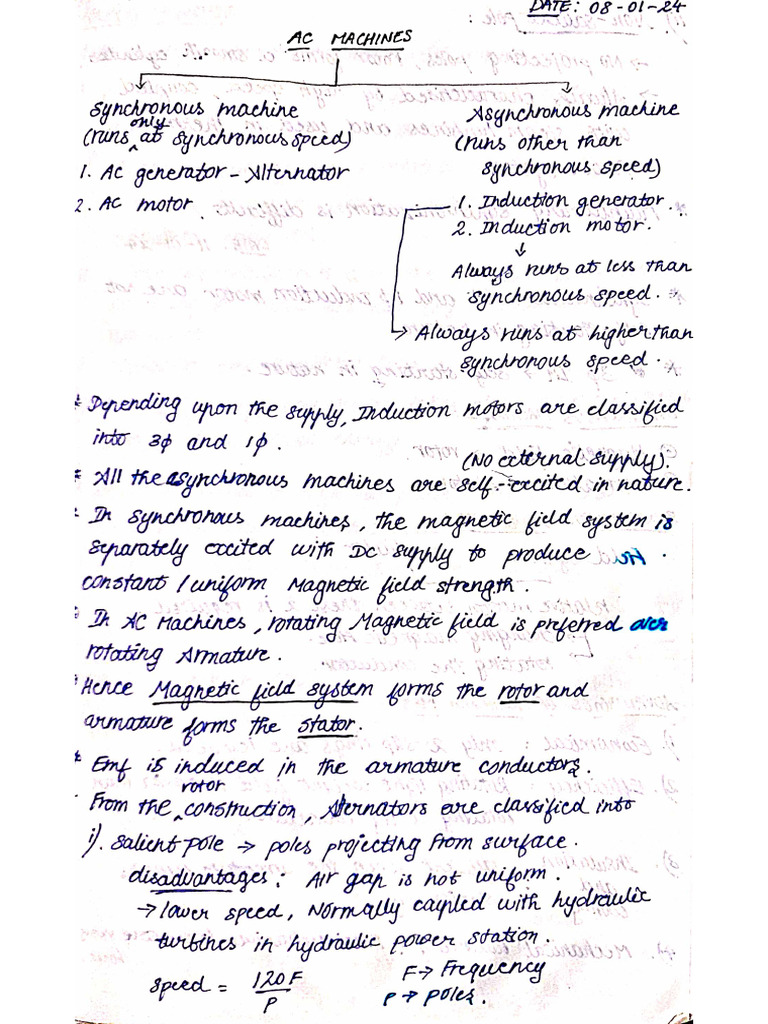 DATE: 08-01-24
AC MACHINES
Synchronous machine
(runs only at synchronous speed)
1. AC generator - Alternator
2. AC motor
Asynchronous machine
(runs other than
synchronous speed)
1. Induction generator.
2. Induction motor.
↓
Always runs at less than
synchronous speed.
→ Always runs at higher than
synchronous speed.
* Depending upon the supply, Induction motors are classified
into 3φ and 1φ.
(No external supply).
* All the asynchronous machines are self-excited in nature.
* In synchronous machines, the magnetic field system is
separately excited with DC supply to produce
constant / uniform Magnetic field strength.
* In AC Machines, rotating Magnetic field is preferred over
rotating Armature.
* Hence Magnetic field system forms the rotor and
armature forms the stator.
* Emf is induced in the armature conductors.
From the rotor construction, Alternators are classified into
i). Salient-pole → poles projecting from surface.
disadvantages: Air gap is not uniform.
→ lower speed, Normally coupled with hydraulic
turbines in hydraulic power station.
speed = 120F / P
F → Frequency
P → Poles.